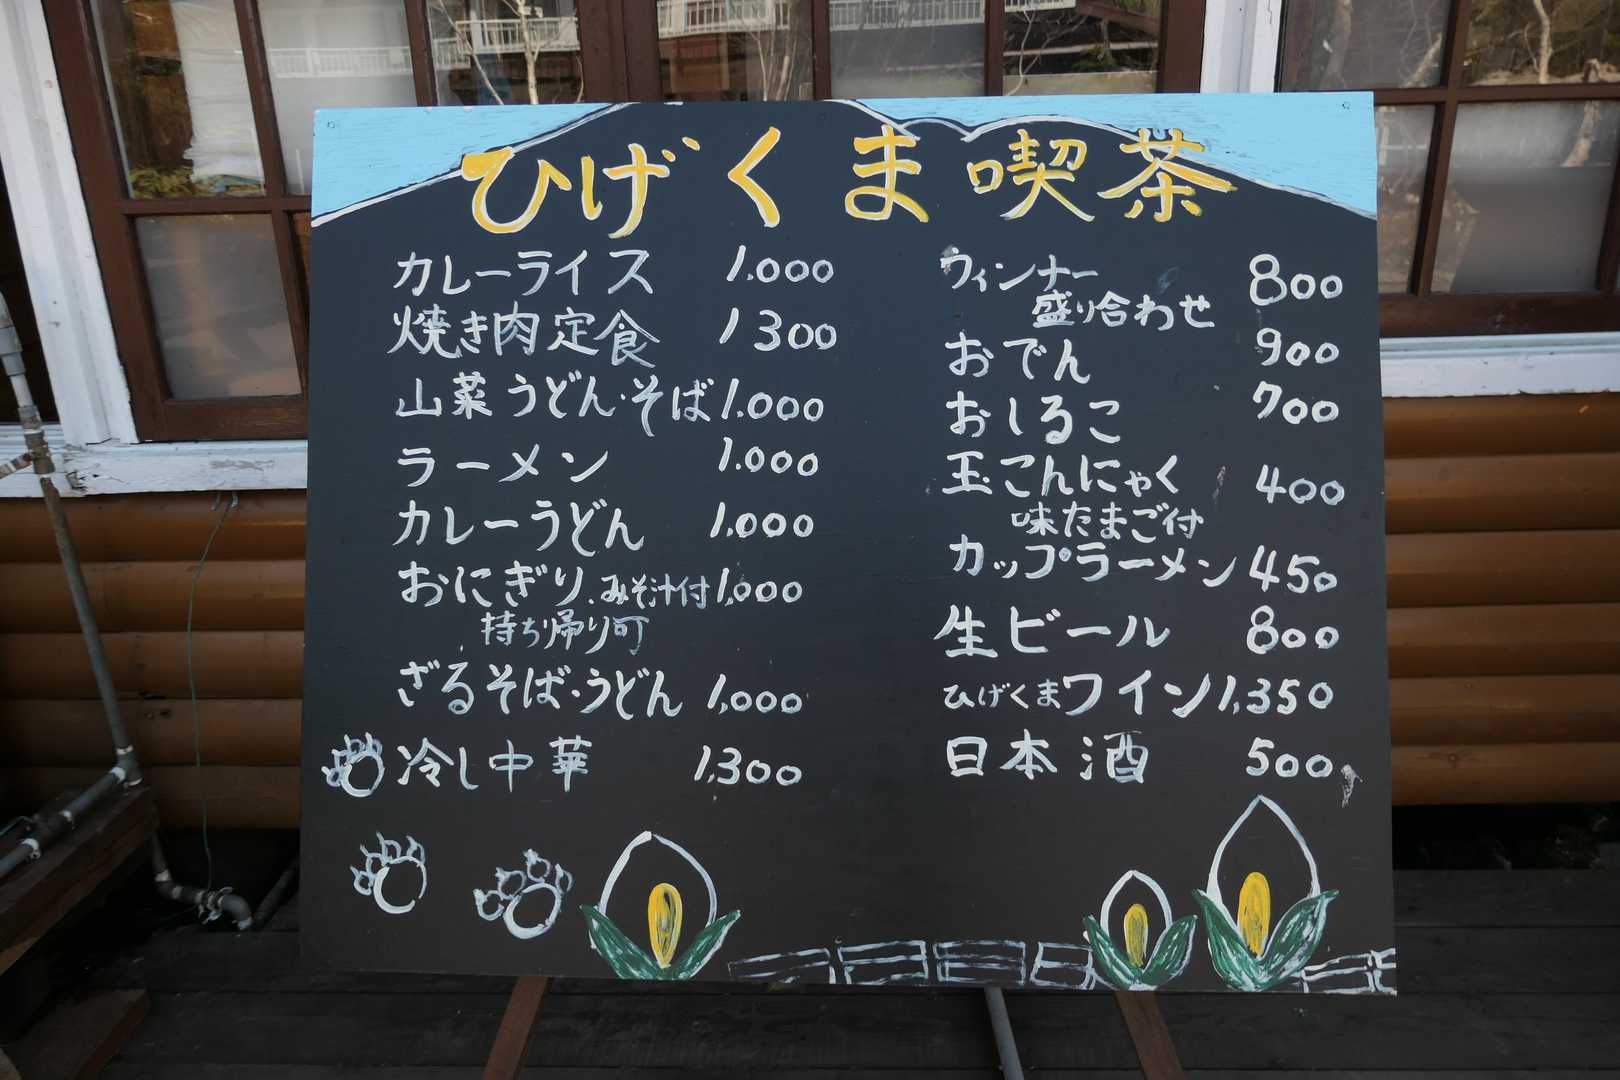 ひげくま喫茶
カレーライス 1.000
焼き肉定食 1300
山菜うどん・そば 1.000
ラーメン 1.000
カレーうどん 1.000
おにぎり、みそ汁付 1,000
持ち帰り可
ざるそば・うどん 1,000
冷し中華 1,300
ウィンナー 800
盛り合わせ
おでん 900
おしるこ 700
玉こんにゃく 400
味たまご付
カップラーメン 450
生ビール 800
ひげくまワイン 1,350
日本酒 500